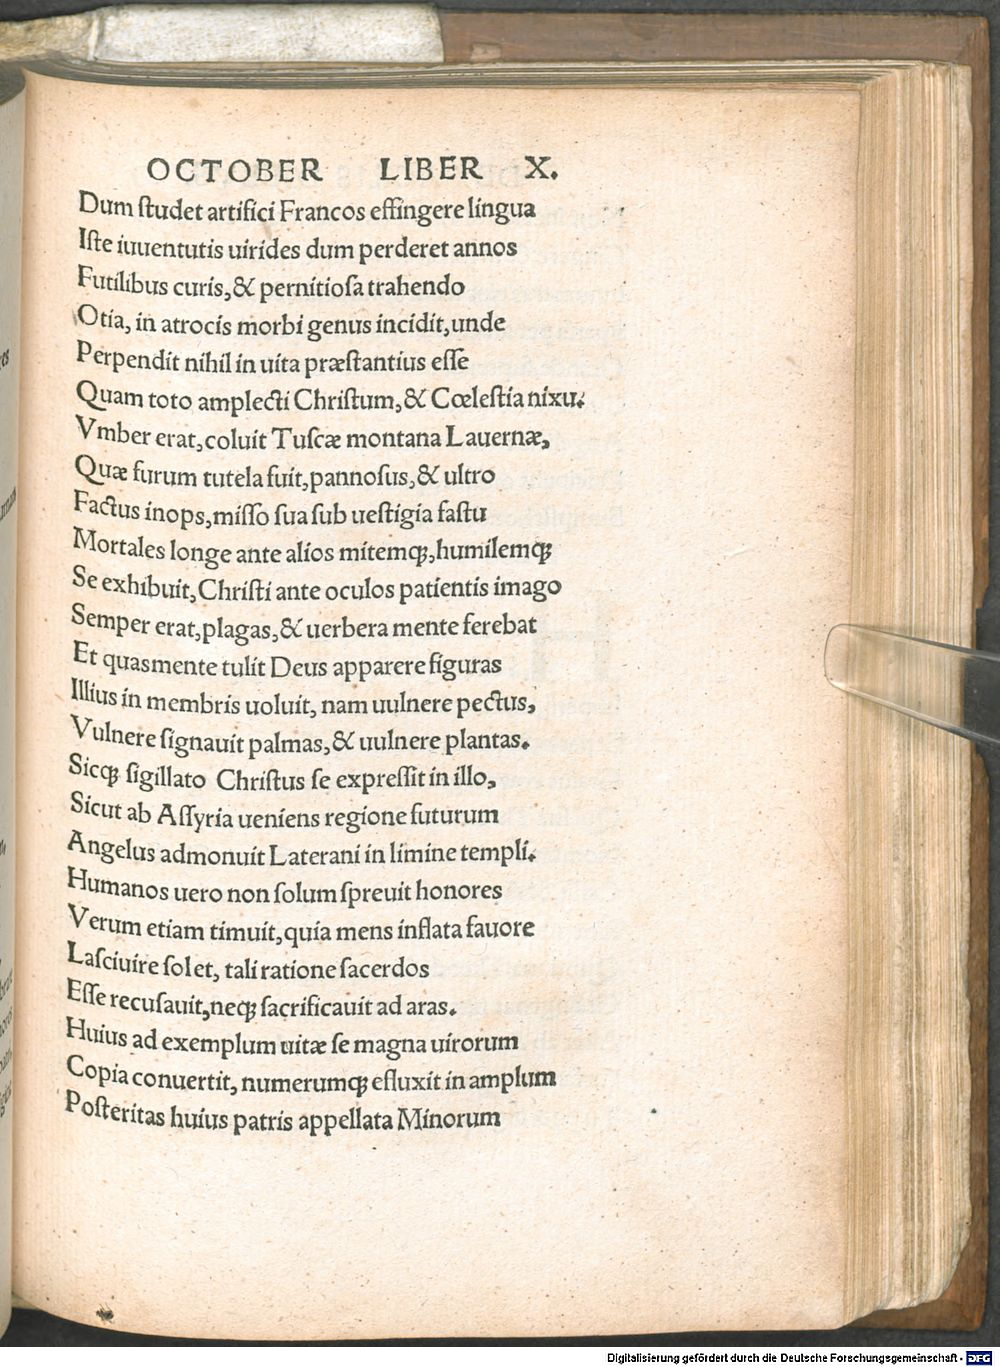 OCTOBER LIBER X.
Dum ſtudet artifici Francos effingere lingua
Iſte iuuentutis uirides dum perderet annos
Futilibus curis,& pernitioſa trahendo
Otia, in atrocis morbi genus incidit,unde
Perpendit nihil in uita præſtantius eſſe
Quam toto amplecti Chriſtum,& Cœleſtia nixu.
Vmber erat,coluit Tuſcæ montana Lauernæ,
Quæ furum tutela fuit,pannoſus,& ultro
Factus inops,miſſo ſua ſub ueſtigia faſtu
Mortales longe ante alios mitemq;,humilemq;
Se exhibuit,Chriſti ante oculos patientis imago
Semper erat,plagas,& uerbera mente ferebat
Et quas mente tulit Deus apparere figuras
Illius in membris uoluit, nam uulnere pectus,
Vulnere ſignauit palmas,& uulnere plantas.
Sicq; ſigillato Chriſtus ſe expreſſit in illo,
Sicut ab Aſſyria ueniens regione futurum
Angelus admonuit Laterani in limine templi.
Humanos uero non ſolum ſpreuit honores
Verum etiam timuit,quia mens inflata fauore
Laſciuire ſolet, tali ratione ſacerdos
Eſſe recuſauit,neq; ſacrificauit ad aras.
Huius ad exemplum uitæ ſe magna uirorum
Copia conuertit, numerumq; efluxit in amplum
Poſteritas huius patris appellata Minorum
Digitalisierung gefördert durch die Deutsche Forschungsgemeinschaft - DFG